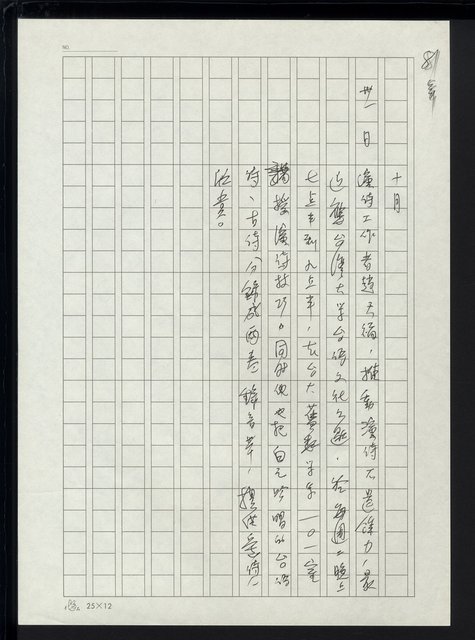 NO.
十月
卅一日 演詩工作者趙天福，推動演詩不遺餘力，最
近應台灣大學台語文化社邀，於每週二晚上
七點半到九點半，在台大舊數學系一〇一室
講授演詩技巧。同時他也把自己吟唱的台語
詩、古詩分錄成兩卷錄音帶，提供愛詩人
欣賞。
25×12